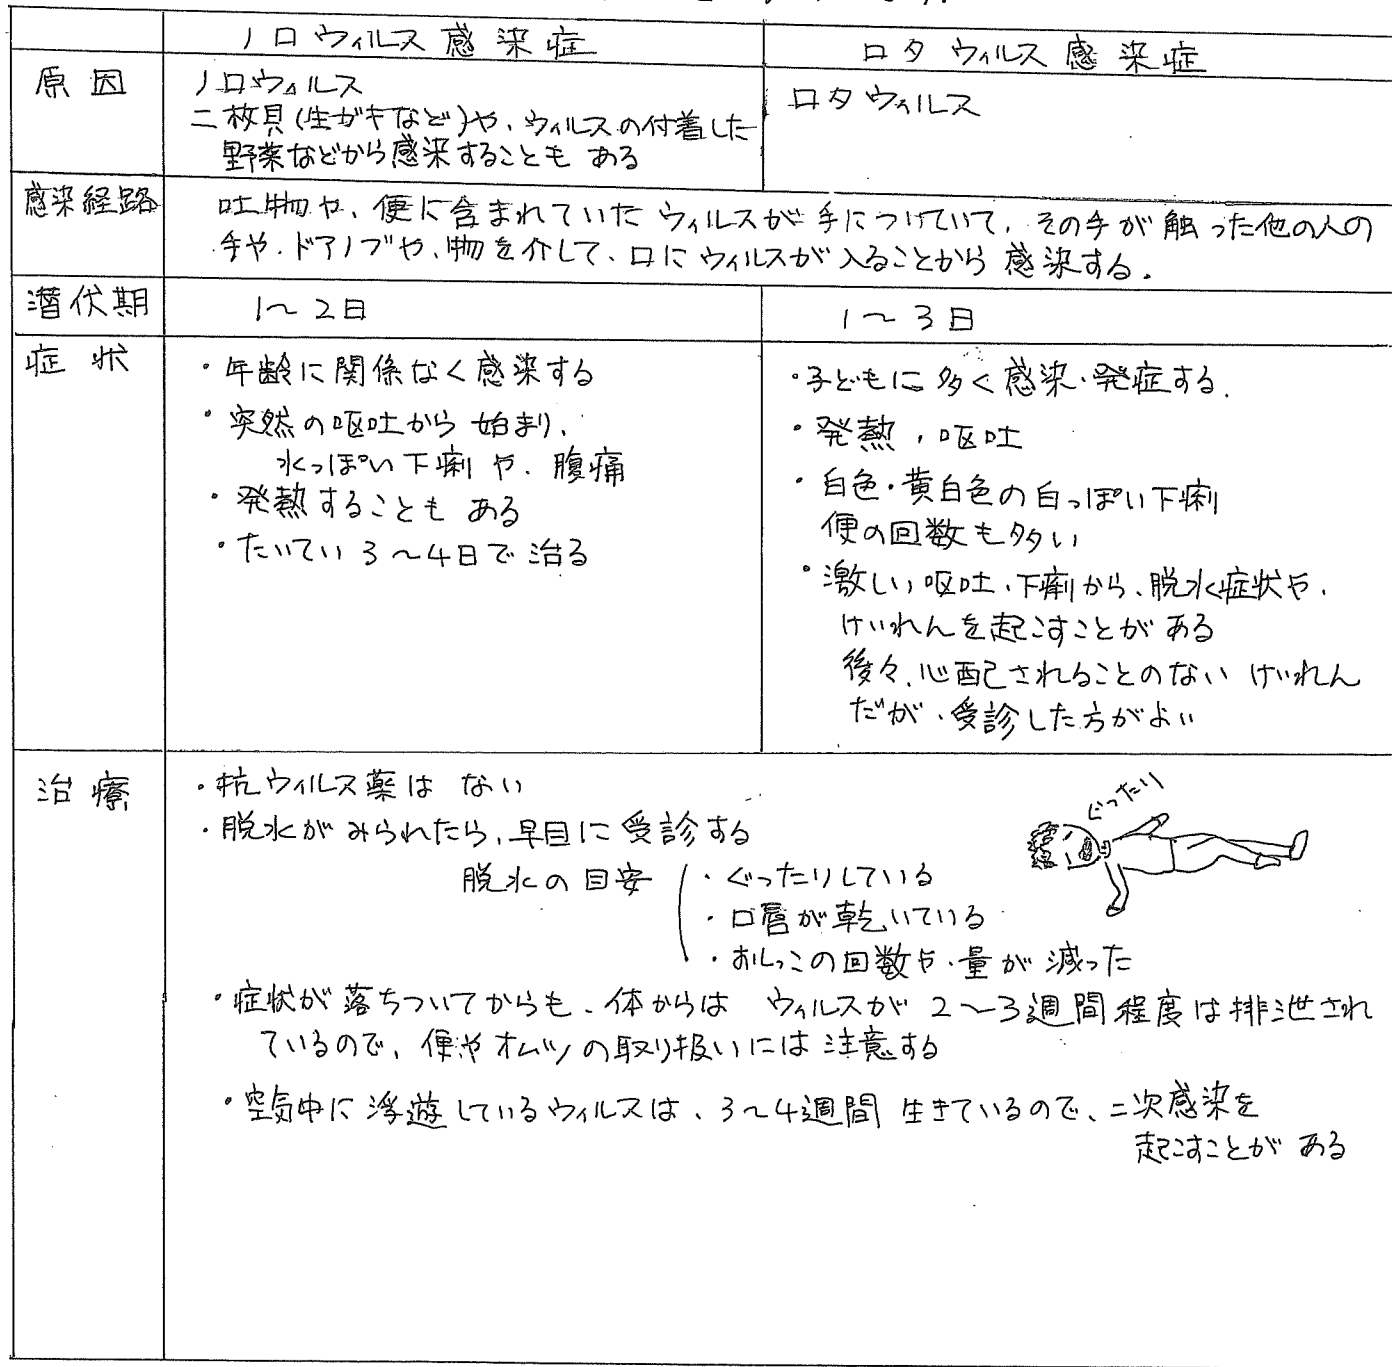 ノロウィルス感染症
ロタウィルス感染症
原因
ノロウィルス
二枚貝(生ガキなど)や、ウィルスの付着した
野菜などから感染することもある
ロタウィルス
感染経路
吐物や、便に含まれていたウィルスが手についていて、その手が触った他の人の
手や、ドアノブや、物を介して、口にウィルスが入ることから感染する。
潜伏期
1〜2日
1〜3日
症状
・年齢に関係なく感染する
・突然の嘔吐から始まり、
水っぽい下痢や、腹痛
・発熱することもある
・たいてい3〜4日で治る
・子どもに多く感染・発症する。
・発熱、嘔吐
・白色・黄白色の白っぽい下痢
便の回数も多い
・激しい嘔吐、下痢から、脱水症状や、
けいれんを起こすことがある
後々、心配されることのないけいれん
だが、受診した方がよい
治療
・抗ウィルス薬はない
・脱水がみられたら、早目に受診する
脱水の目安
・ぐったりしている
・口唇が乾いている
・おしっこの回数や、量が減った
ぐったり
・症状が落ちついてからも、体からはウィルスが2〜3週間程度は排泄され
ているので、便やオムツの取り扱いには注意する
・空気中に浮遊しているウィルスは、3〜4週間生きているので、二次感染を
起こすことがある